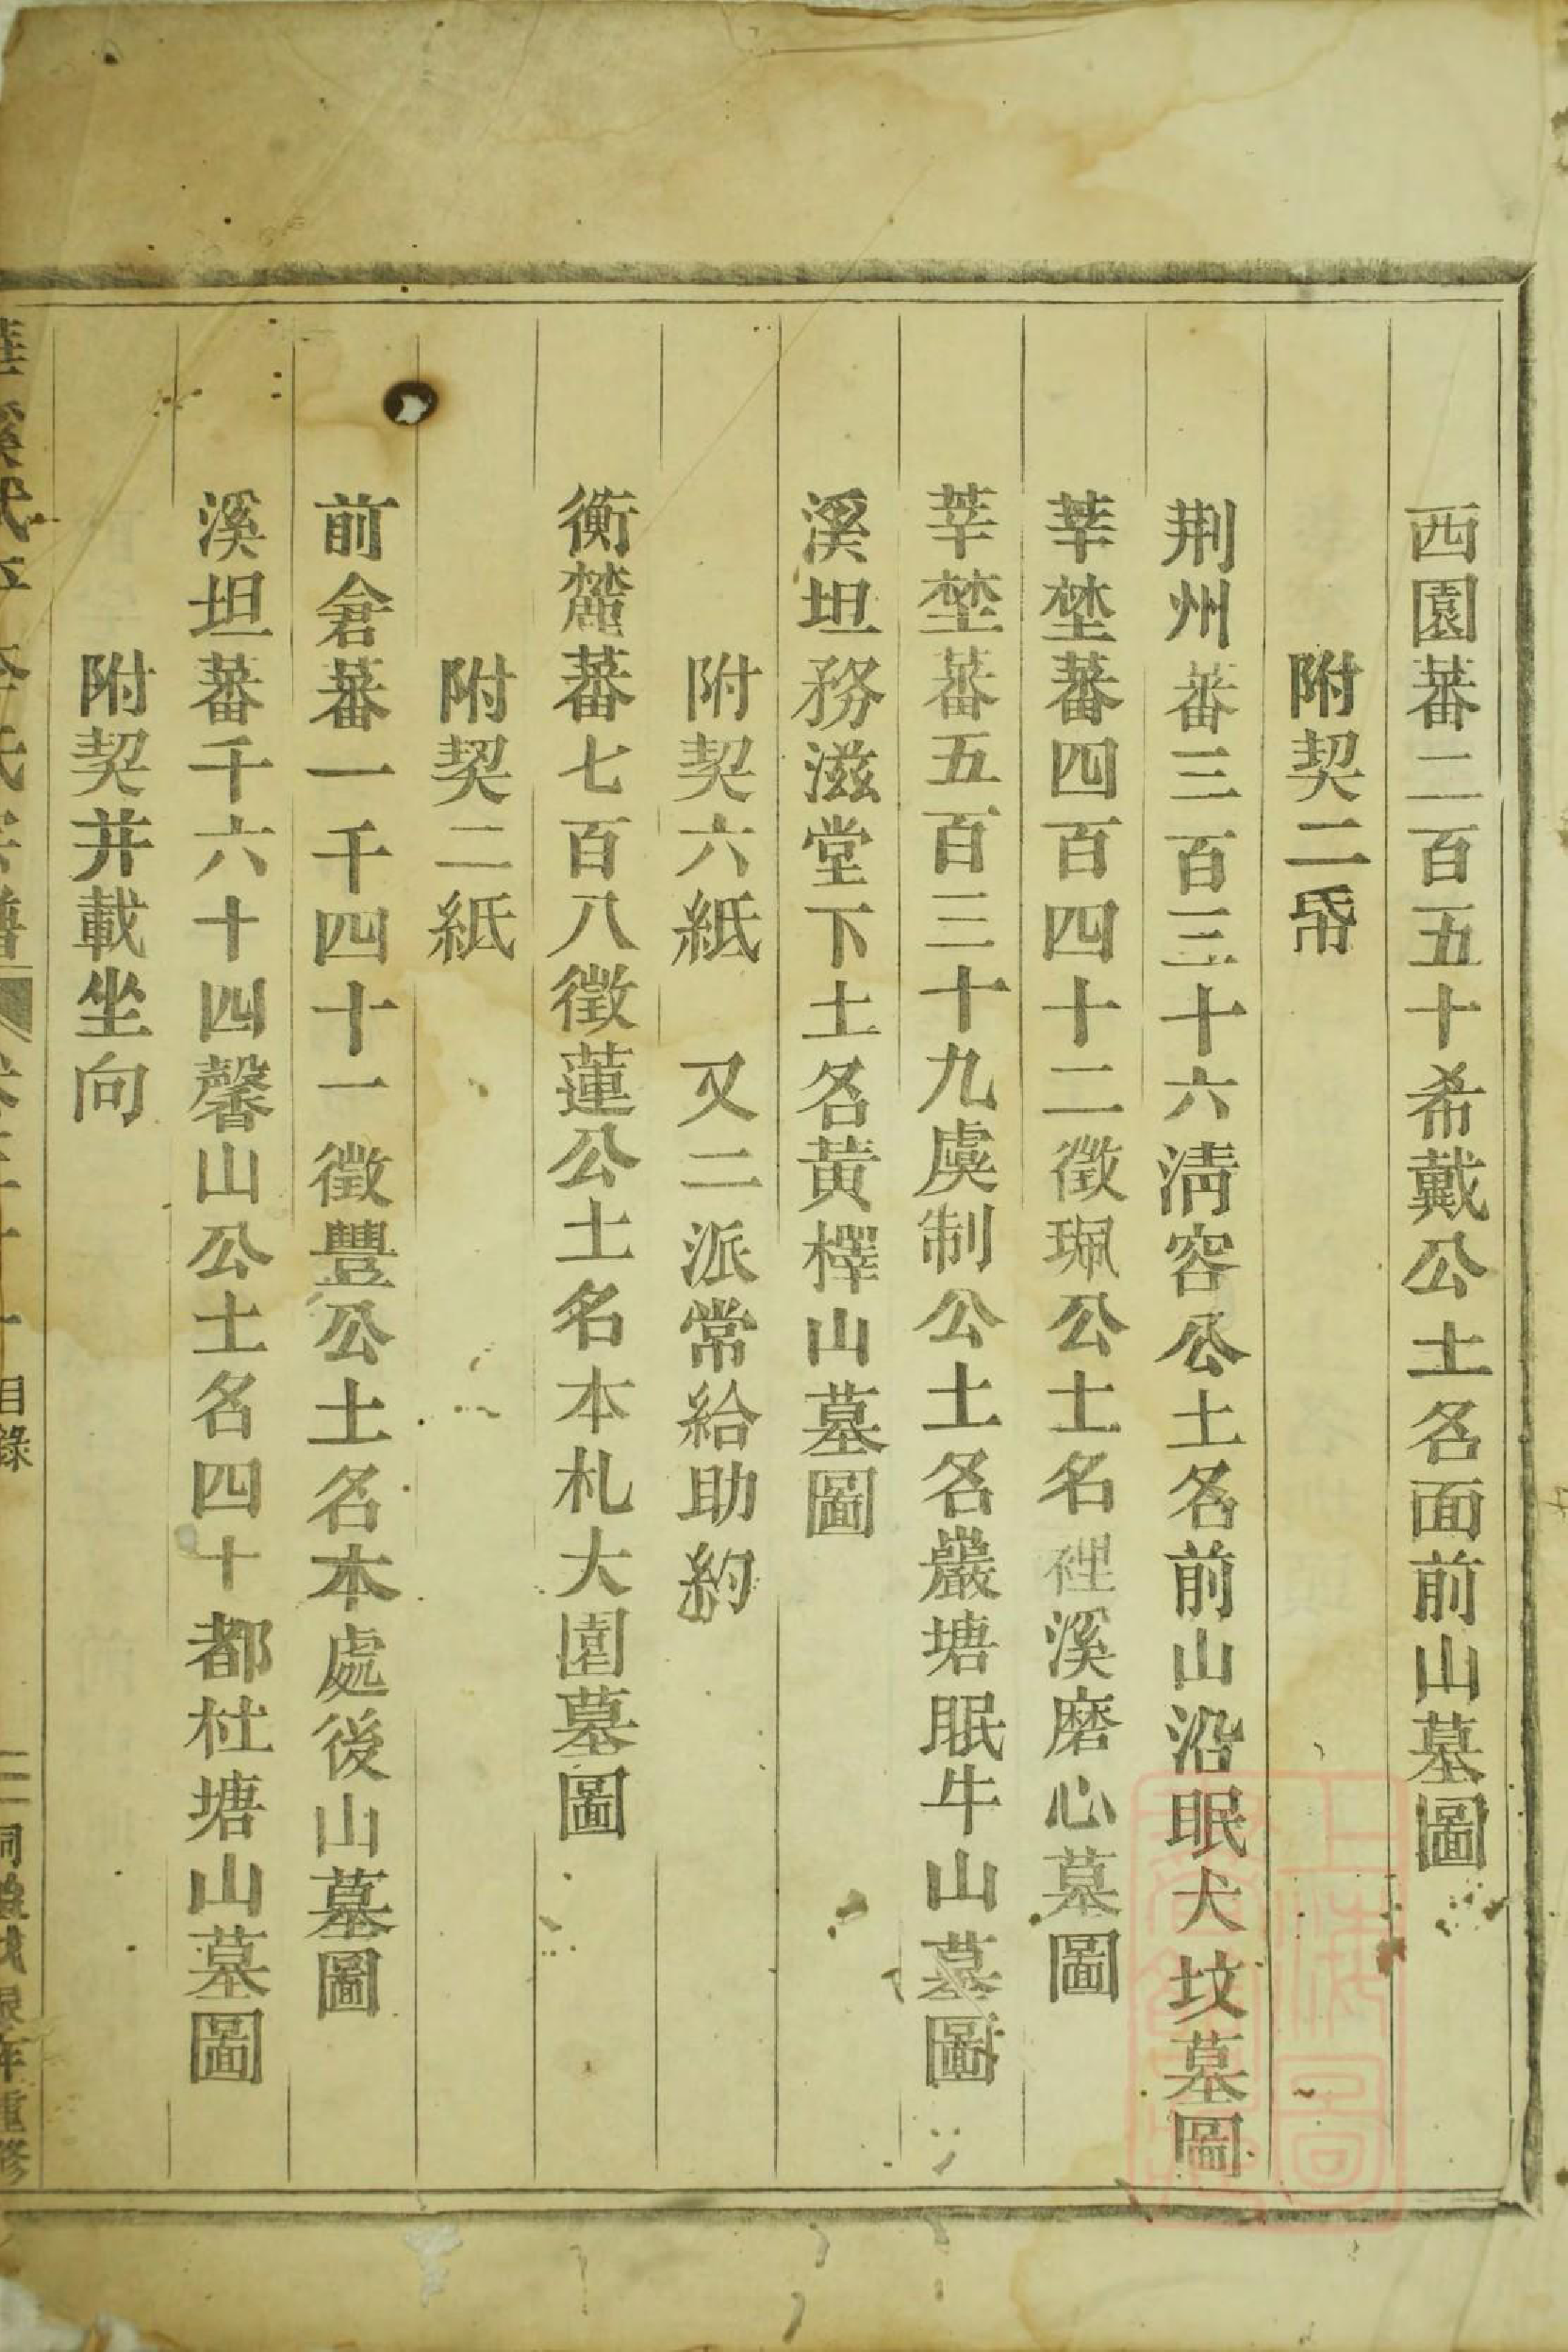 西園蕃二百五十希戴公土名面前山墓圖
附契二帋
荆州蕃三百三十六淸容公土名前山沿眠犬坟墓圖
莘埜蕃四百四十二徵珮公土名裡溪磨心墓圖
莘埜蕃五百三十九虞制公土名嚴塘眠牛山墓圖
溪坦務滋堂下土名黃檡山墓圖
附契六紙　又二派常給助約
衡麓蕃七百八徵蓮公土名本札大園墓圖
附契二紙
前倉蕃一千四十一徵豐公土名本處後山墓圖
溪坦蕃千六十四馨山公土名四十都杜塘山墓圖
附契并載坐向
目錄